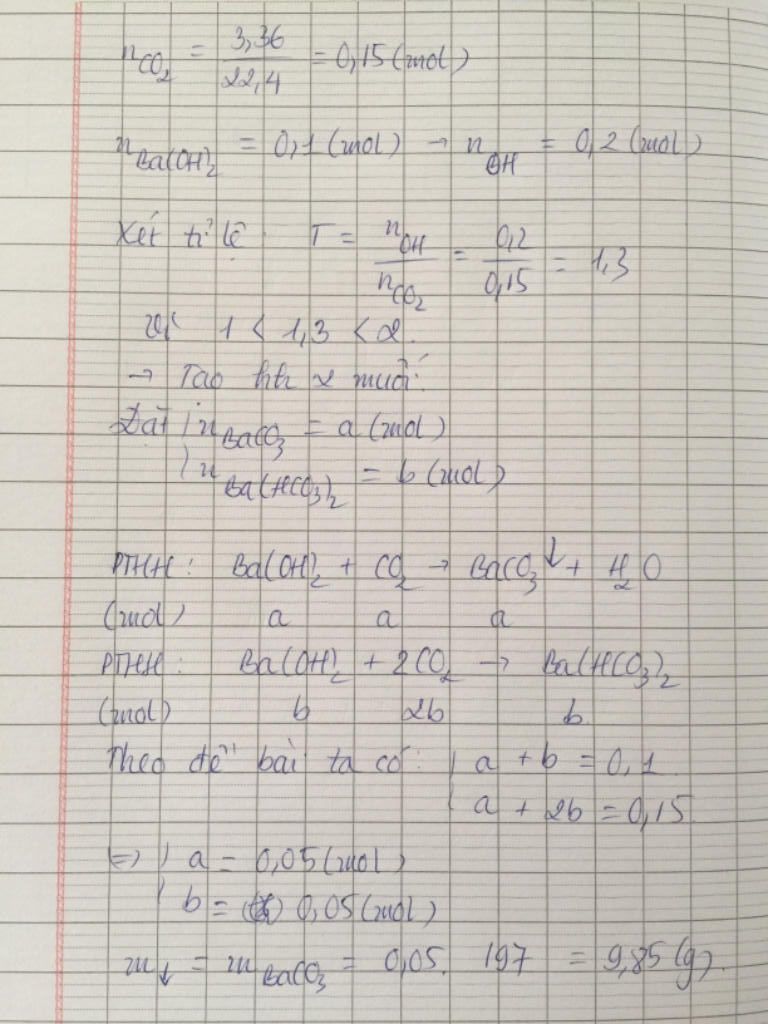 nCO2 = 3,36 / 22,4 = 0,15 (mol)
nBa(OH)2 = 0,1 (mol) → nOH = 0,2 (mol)
Xét tỉ lệ: T = nOH / nCO2 = 0,2 / 0,15 = 1,3
Vì 1 < 1,3 < 2.
→ Tạo hh 2 muối.
Đặt nBaCO3 = a (mol)
nBa(HCO3)2 = b (mol)
PTHH: Ba(OH)2 + CO2 → BaCO3↓ + H2O
(mol) a a a
PTHH: Ba(OH)2 + 2CO2 → Ba(HCO3)2
(mol) b 2b b
Theo đề bài ta có: a + b = 0,1
a + 2b = 0,15
=> a = 0,05 (mol)
b = 0,05 (mol)
m↓ = mBaCO3 = 0,05. 197 = 9,85 (g).